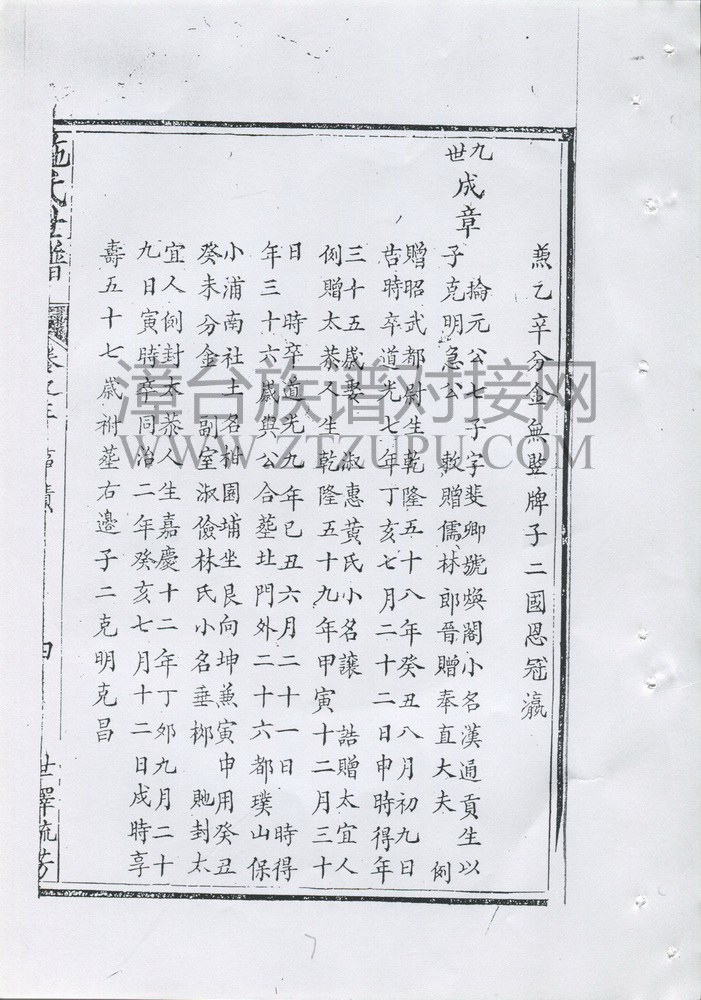 兼乙辛分金無竪牌子二國恩冠瀛
九世
成章
掄元公七子字斐卿號煥閣小名漢通貢生以
子克明急公　敕贈儒林郎晉贈奉直大夫　例
贈昭武都尉生乾隆五十八年癸丑八月初九日
吉時卒道光七年丁亥七月二十二日申時得年
三十五歲娶　淑惠黃氏小名讓　誥贈太宜人
例贈太恭人生乾隆五十九年甲寅十二月三十
日　時卒道光九年己丑六月二十一日　時得
年三十六歲與公合塟址門外二十六都璞山保
小浦南社土名柑園埔坐艮向坤兼寅申用癸丑
癸未分金　副室淑儉林氏小名垂柳　貤封太
宜人例封太恭人生嘉慶十二年丁卯九月二十
九日寅時卒同治二年癸亥七月十二日戌時享
壽五十七歲祔塟右邊子二克明克昌
施氏世譜
卷之
事蹟
四
世澤流芳
漳台族谱对接网
WWW.ZTZUPU.COM